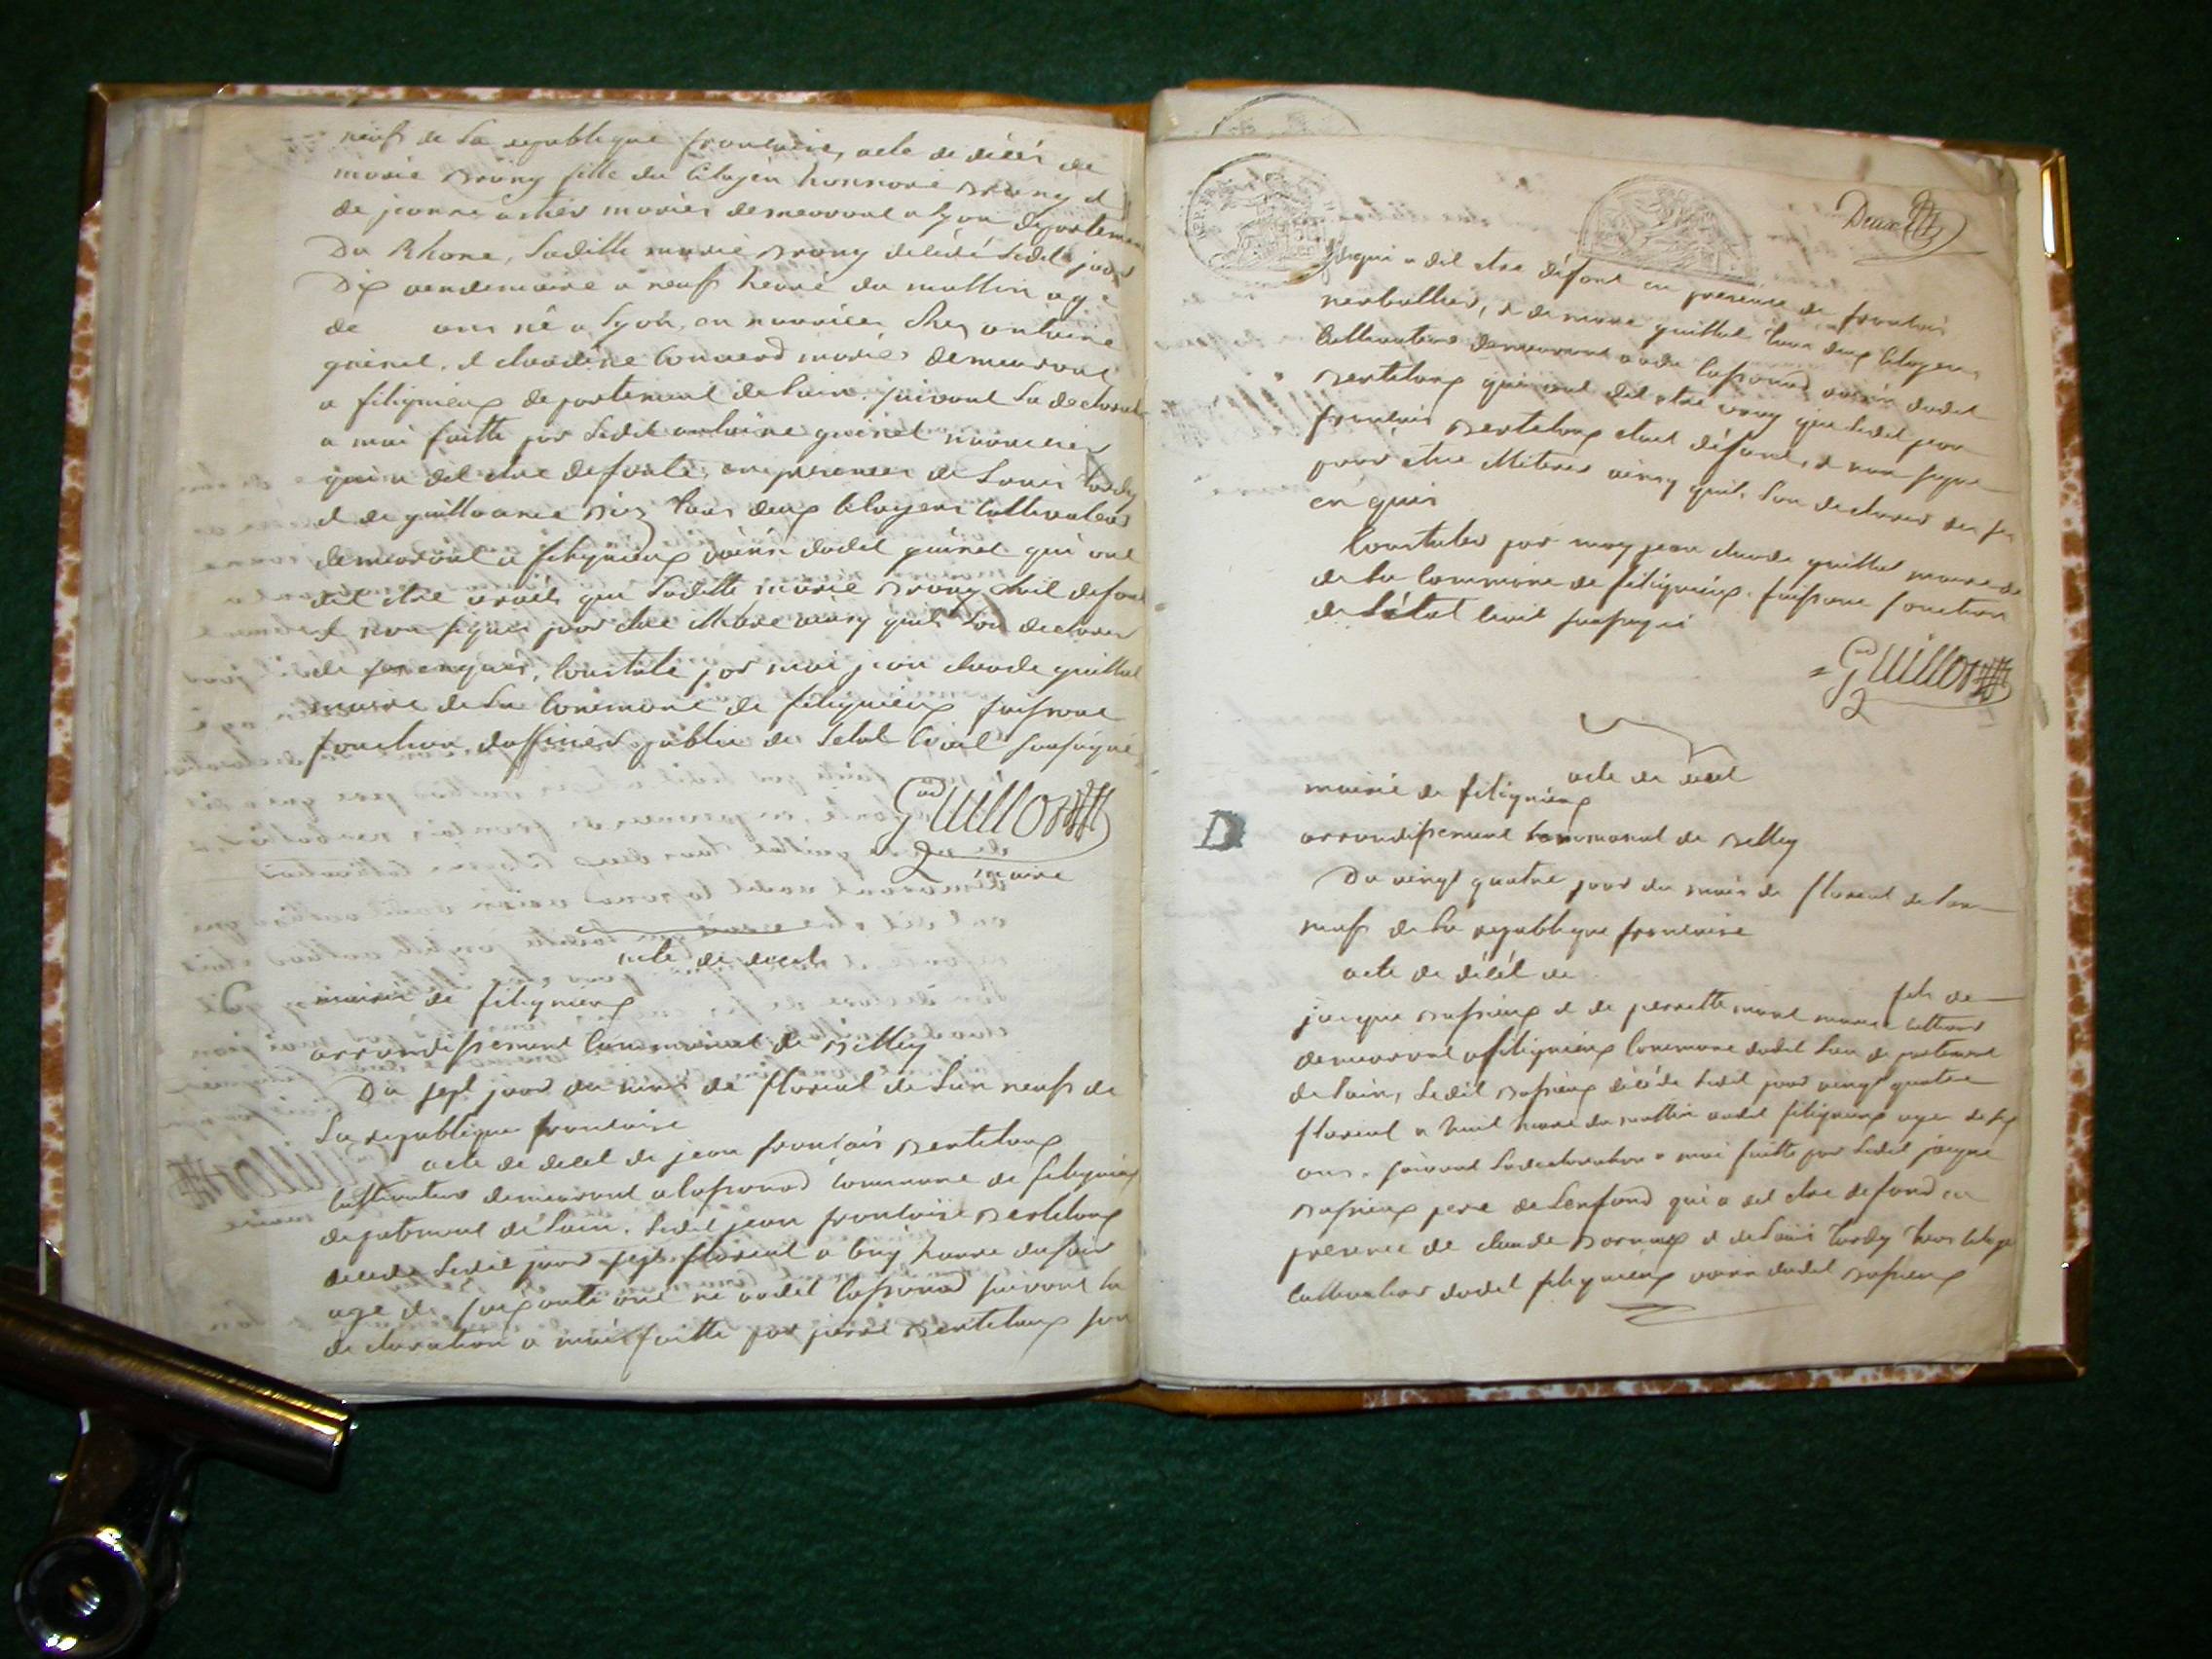 neuf de la republique francaise, acte de décés de
marie Brany fille du citoyen honnoré Brany et
de jeanne marier demeurant a lyon departement
Du Rhone, laditte marie Brany décédé ledit jour
Dix vendemiaire a neuf heure du mattin agé
de ans né a lyon, en nourrice chez antoine
guinet, et claudine marier demeurant
a filignieux departement de lain. suivant la declarat
a moi faitte par ledit antoine guinet nourricier
qui a dit etre defonte, en presences de Louis tardy
et de guillaume tous deux citoyens cultivateur
demeurant a filignieux voisin dudit guinet qui ont
dit etre que laditte marie Brany etait defont
et non signés pour etre ainsy quil lon declarer
de enquis, Constaté par moi jean claude guillot
maire de la Commune de filignieux faissant
fonction dofficier public de letat Civil soussigné
Guillot
maire
acte de decet
mairie de filignieux
arrondissement Communal de Belley
Du sept jour du mois de floréal de lan neuf de
la republique francaise
acte de decet de jean francais Berteloux
cultivateur demeurant a lassonod Commune de filignieux
departement de lain. ledit jean francaise Berteloux
décédé ledit jour sept floréal a heure du soir
age de soixante ans né audit lassonod suivant la
declaration a moi faitte par pierre Berteloux son
Deux
qui a dit etre défont en presence de francais
, et de guillot tous deux citoyens
cultivateurs demeurant audit lassonod voisin dudit
Berteloux qui ont dit etre vray que ledit jean
francais Berteloux etait défont, et non signe
pour etre ainsy quil lon declarer de
enquis
Constater par moy jean claude guillot maire de
de la Commune de filignieux faissant fonction
de létat Civil soussigné
Guillot
acte de decet
mairie de filignieux
D
arrondissement Communal de Belley
Du vingt quatre jour du mois de floréal de lan
neuf de la republique francaise
acte de décét de
fils de
jacque Bassieux et de perrette marier
demeurant a filignieux Commune dudit lieu departement
de lain, ledit Bassieux décédé ledit jour vingt quatre
floréal a huit heure du mattin audit filignieux ager de
ans. suivant la declaration a moi faitte par ledit jacque
Bassieux pere de lenfand qui a dit etre defond en
presence de claude et de Louis tardy tous
cultivateur dudit filignieux voisin dudit Bassieux